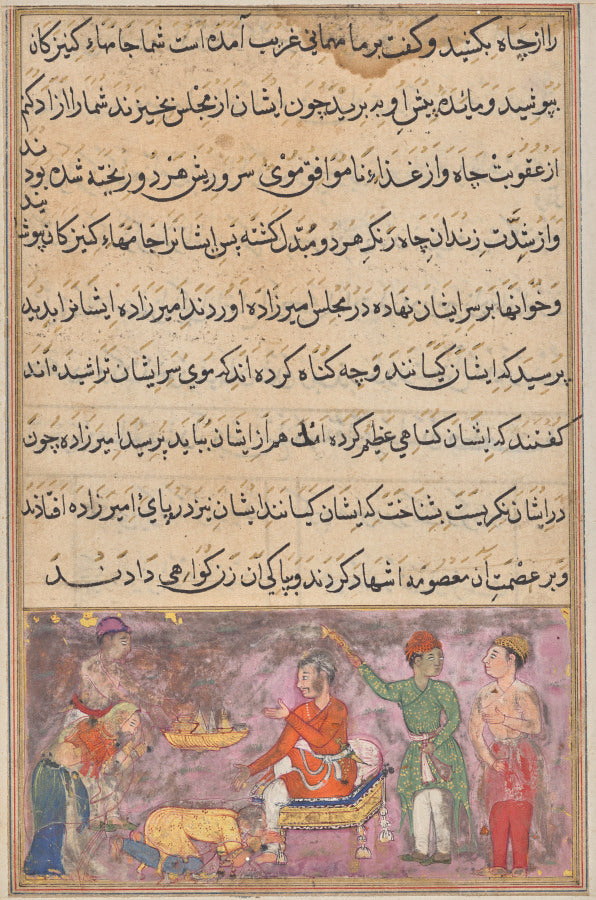 را از چاه بکشید و کفت بر ما مهمانی غریب آمده است شما جامهاء کنیزکان
بپوشید و مایٔده پیش او به برید چون ایشان از مجلس بخیزند شما را ازاد کم
ند
از عقوبت چاه و از غذاء نا موافق موی سر و ریش هر دو ریخته شده بود
یند
و از شدّت زندان چاه رنک هر دو مبدّل کشته پس ایشانرا جامهاء کنیزکان پوشا
و خوانها بر سر ایشان نهاده در مجلس امیرزاده اوردند امیرزاده ایشانرا بدید
پرسید که ایشان کیانند و چه کناه کرده اند که موی سر ایشان تراشیده اند
کفتند که ایشان کناهی عظیم کرده اند هم از ایشان بباید پرسید امیرزاده چون
در ایشان نکریست بشناخت که ایشان کیانند ایشان نیز در پایٔ امیرزاده افتادند
و بر عصمت آن معصومه اشهاد کردند و بپاکی آن زن کواهی دادند